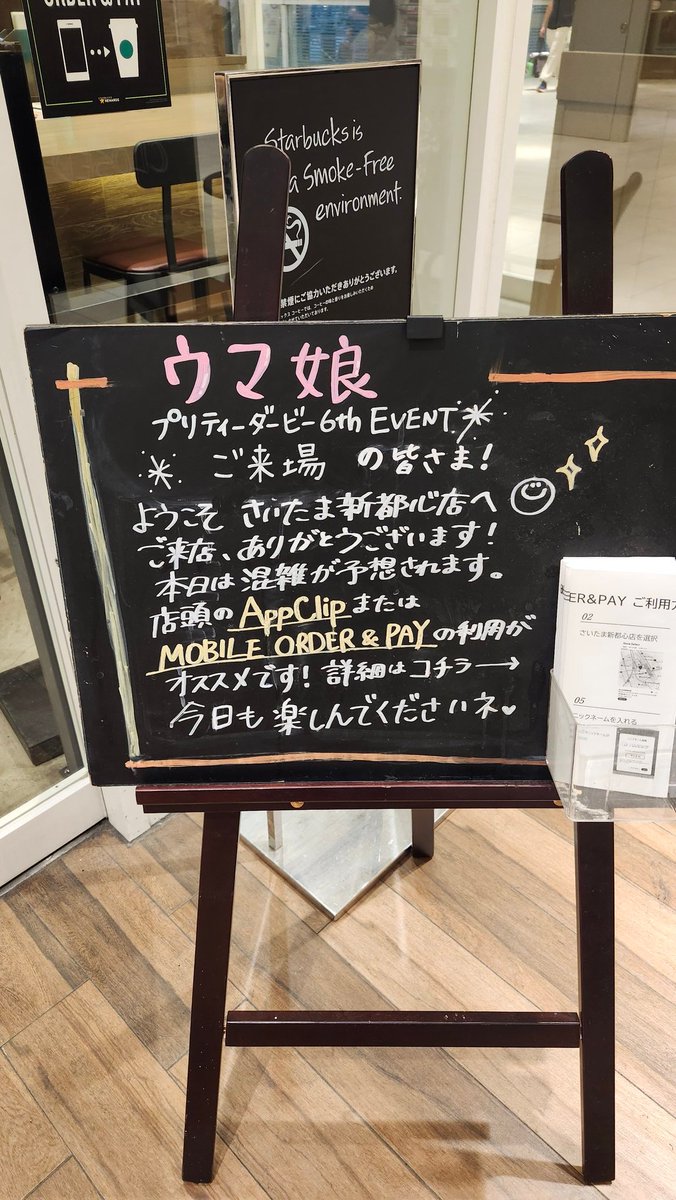 ORDER & PAY
REWARDS
Starbucks is
a Smoke-Free
environment.
禁煙にご協力いただきありがとうございます。
ウマ娘
プリティーダービー 6th EVENT
ご来場 の皆さま!
ようこそ さいたま新都心店へ
ご来店、ありがとうございます!
本日は 混雑が予想されます。
店頭の AppClip または
MOBILE ORDER & PAY の利用が
オススメです! 詳細は コチラ→
今日も 楽しんでくださいネ♥
ER&PAY ご利用方
02
さいたま新都心店を選択
05
ニックネームを入れる